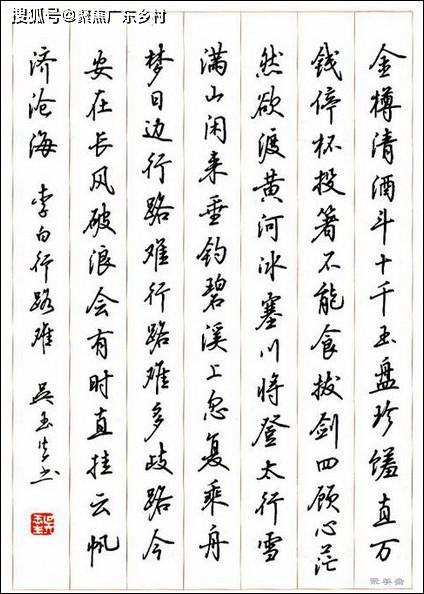 搜狐号@聚焦广东乡村
金樽清酒斗十千玉盘珍馐直万
钱停杯投箸不能食拔剑四顾心茫
然欲渡黄河冰塞川将登太行雪
满山闲来垂钓碧溪上忽复乘舟
梦日边行路难行路难多歧路今
安在长风破浪会有时直挂云帆
济沧海 李白行路难 吴玉生书